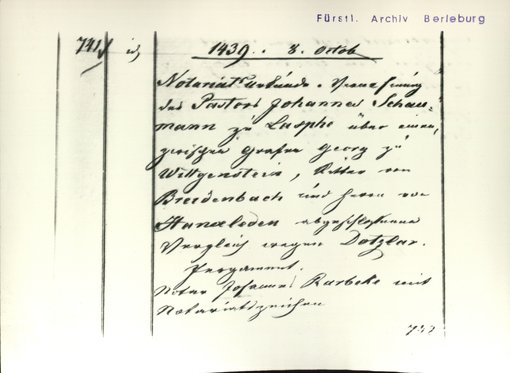 Fürstl. Archiv Berleburg
1439. 8. Octob
Notariats Urkunde. Vernehmung
des Pastors Johannes Schau-
mann zu Lasphe über einen
zwischen Grafen Georg zu
Wittgenstein, Ritter von
Breidenbach und Herrn von
abgeschlossenen
Vergleich wegen Dotzlar.
Pergament.
Notar Johannes mit
Notariatszeichen